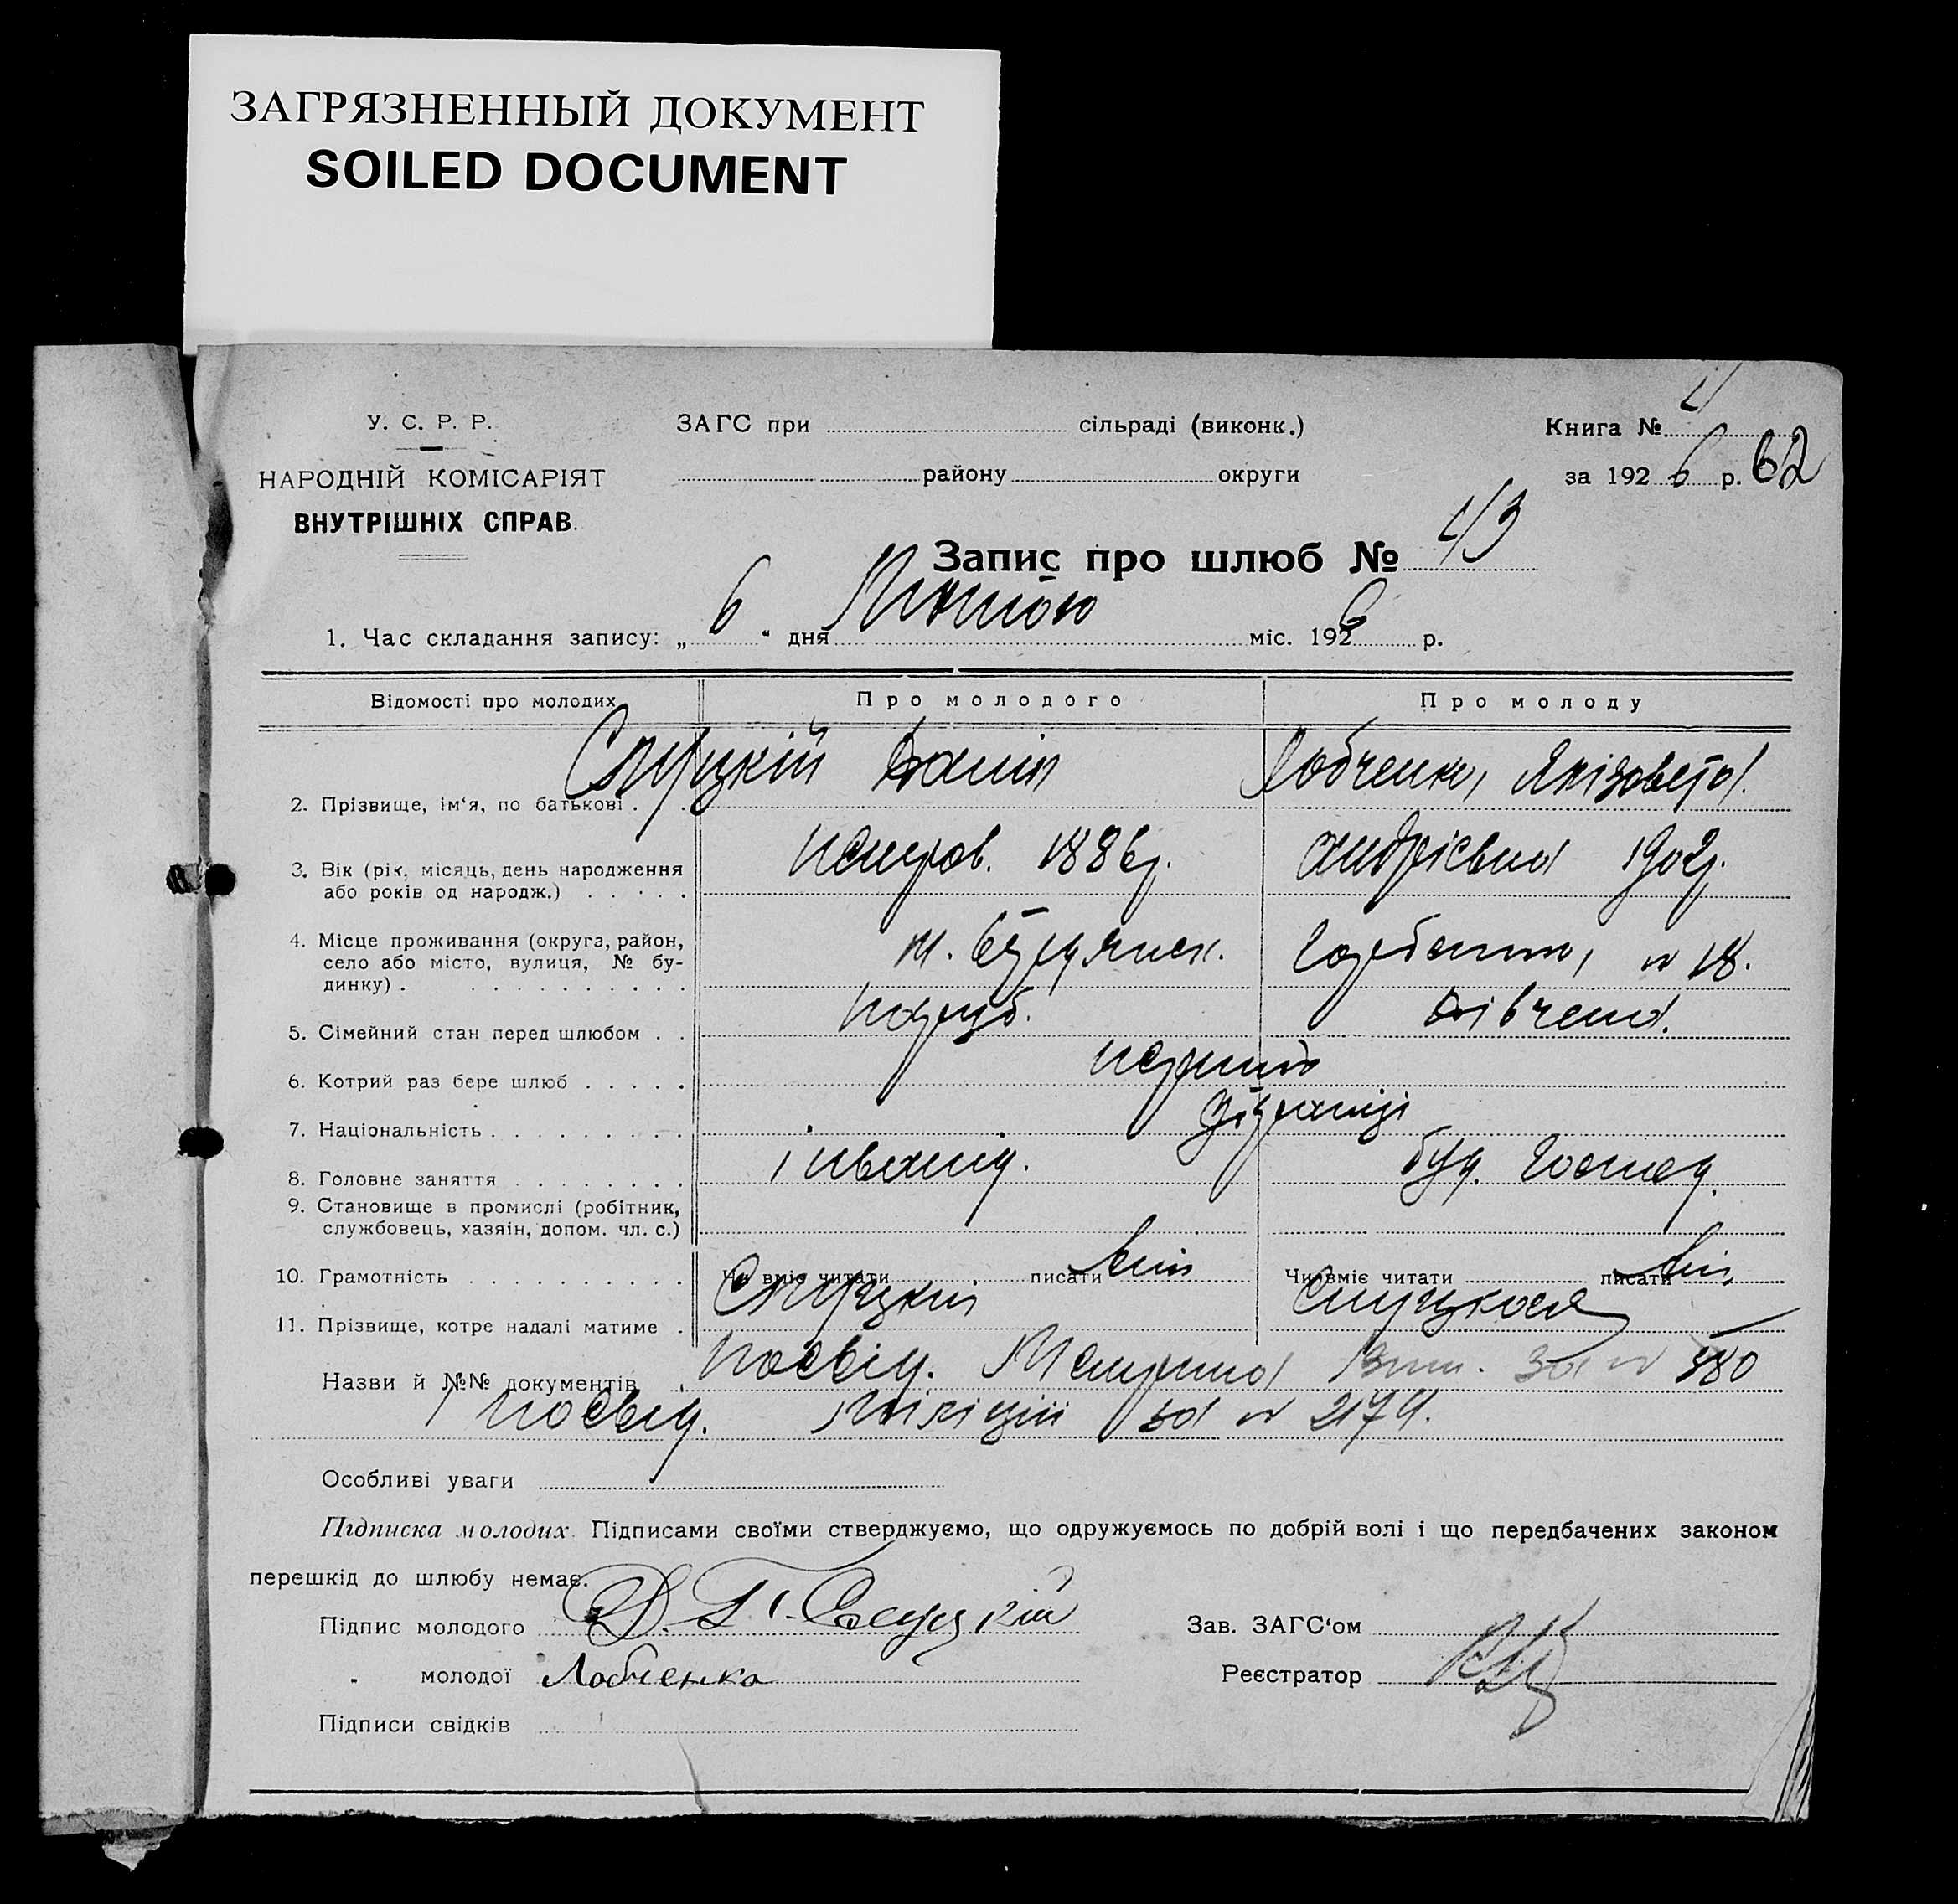 ЗАГРЯЗНЕННЫЙ ДОКУМЕНТ
SOILED DOCUMENT
У. С. Р. Р.
НАРОДНІЙ КОМІСАРІЯТ
ВНУТРІШНІХ СПРАВ.
ЗАГС при сільраді (виконк.)
району округи
Книга №
за 1926 р. 62
Запис про шлюб № 43
1. Час складання запису: „6“ дня Лютого міс. 1926 р.
Відомості про молодих Про молодого Про молоду
2. Прізвище, ім‘я, по батькові . . Слуцкій Даніл Лобченко, Лизовета
3. Вік (рік, місяць, день народження
або років од народж.) . . . . . Петров. 1886р. Андрієвна 1902р.
4. Місце проживання (округа, район,
село або місто, вулиця, № бу-
динку) . . . . . . . . . . . № 18.
5. Сімейний стан перед шлюбом . . Паруб. дівчена.
6. Котрий раз бере шлюб . . . . . перший
7. Національність . . . . . . . . .
8. Головне заняття . . . . . . . . інвалід. буд. Господ.
9. Становище в промислі (робітник,
службовець, хазяін, допом. чл. с.)
10. Грамотність . . . . . . . . . . Чи вміє читати писати Чи вміє читати писати
11. Прізвище, котре надалі матиме . Слуцкій Слуцкая
Назви й №№ документів . посвід. Метрична за № 380
посвід. Міліціи за № 2174.
Особливі уваги
Підписка молодих. Підписами своїми стверджуємо, що одружуємось по добрій волі і що передбачених законом
перешкід до шлюбу немає.
Підпис молодого Д. П. Слуцкій Зав. ЗАГС‘ом
„ молодої Лобченко Реєстратор
Підписи свідків